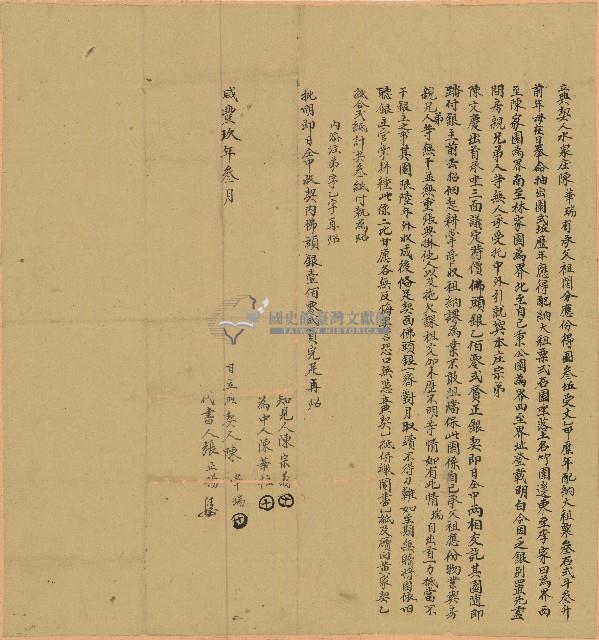 立典契人水家庄陳華瑞有承父祖鬮分應份得園叁坵受文乙甲歷年配納大租粟叁石弍斗叁升
前年母在日養命抽出園弍坵歷年應得配納大租粟弍石園坐落土名竹園邊東至李家田為界西
至陳家園為界南至林家園為界北至自己秉公園為界四至界址登載明白今因乏銀別置先盡
問房親兄弟人等無人承受托中外引就與本庄宗弟
陳文慶出首承坐三面議定時價佛頭銀乙佰零弍員正銀契即日仝中兩相交訖其園隨即
踏付銀主前去招佃起耕掌管收租納課為業不敢阻擋保此園係自己承父祖應份物業與房
親兄弟人等無干並無重張典掛他人以及拖欠課租交加來歷不明等情如有此情瑞自出首一力抵當不
干銀主之事其園限陸年外收成後俻足契面佛頭銀一齊對月取贖不得刁難如至期無贖將園依旧
聽銀主官掌耕種此係二比甘愿各無反悔
恐口無憑立典契乙紙併繳鬮書乙紙及贖回黃家契乙
紙合共弍紙計共叁紙付執為炤
內添注弟字乙字再炤
批明即日仝中收契內佛頭銀壹佰零弍員完足再炤
知見人陳宗義
為中人陳華
咸豐玖年叁月 日立典契人陳華瑞
代書人張正
國史館臺灣文獻館
TAIWAN HISTORICA